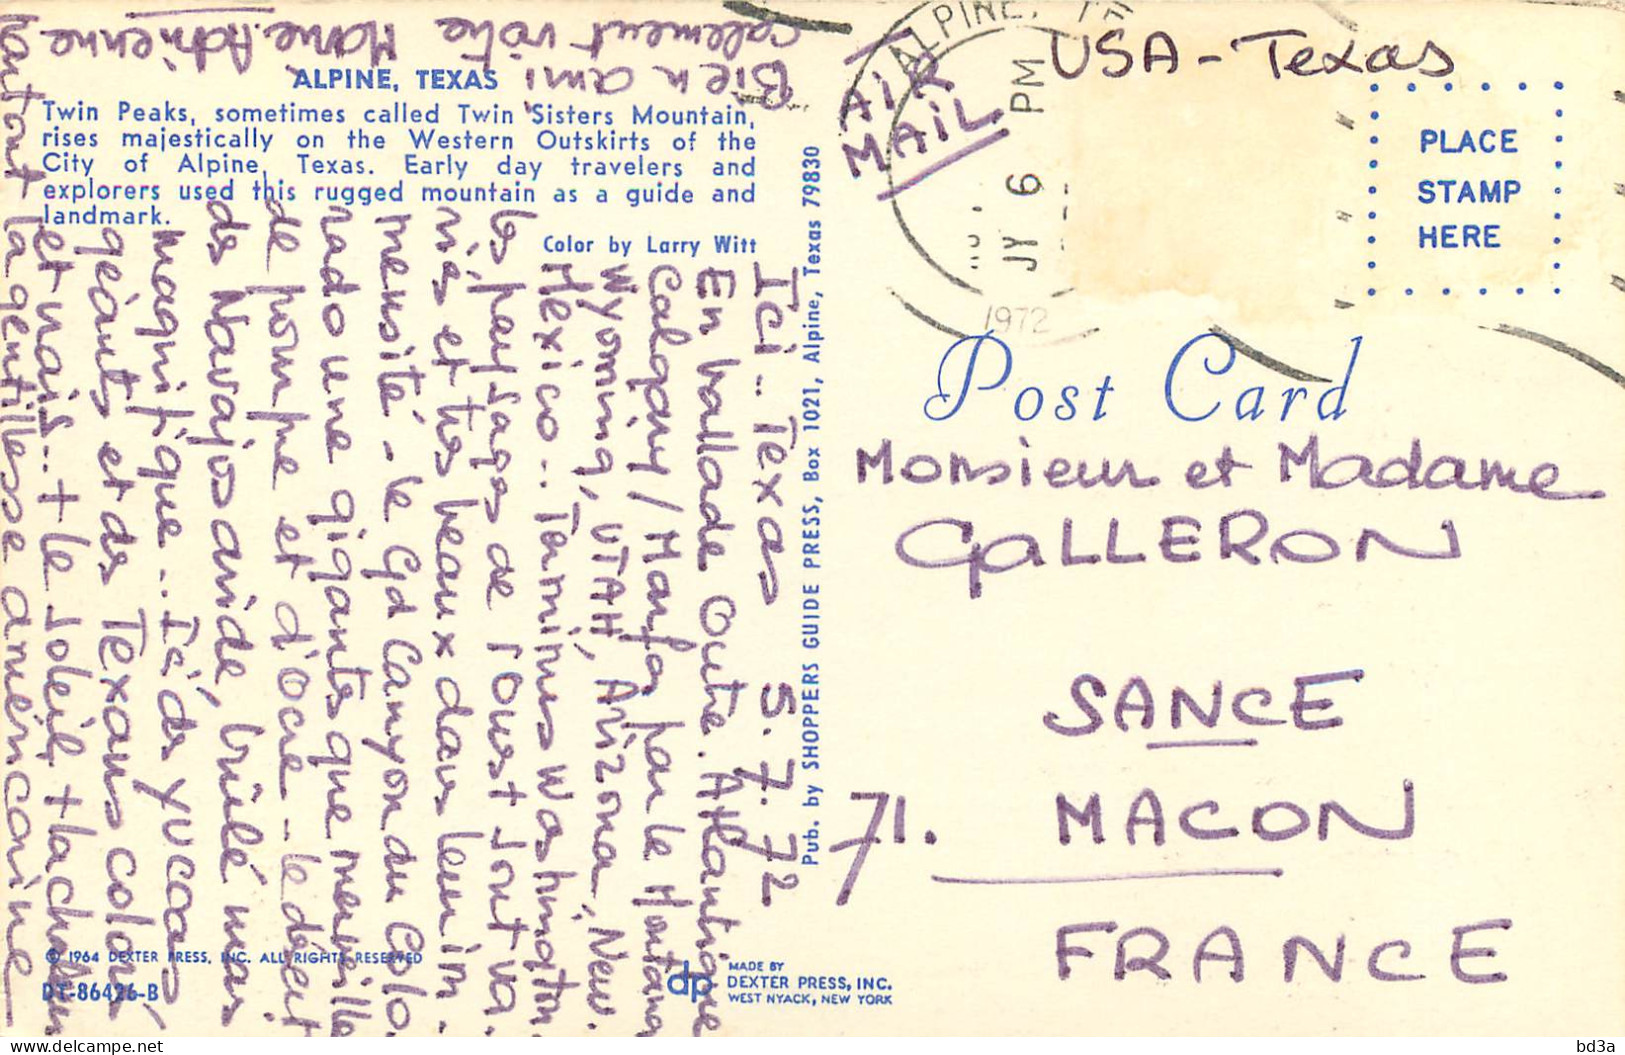 ALPINE, TEXAS
Twin Peaks, sometimes called Twin Sisters Mountain,
rises majestically on the Western Outskirts of the
City of Alpine, Texas. Early day travelers and
explorers used this rugged mountain as a guide and
landmark.
Color by Larry Witt
Ici.. Texas 5.7.72
En ballade Outre. Atlantique
Calgary / par le Montana
Wyoming, UTAH, Arizona, New.
Mexico.. Terminus Washington.
les paysages de l'ouest sont va.
riés et très beaux dans leur im.
mensité - le Gd Canyon du Colo.
rado une gigantesque merveille
de pourpre et d'ocre - le désert
des Navajos aride, brûlé mais
magnifique.. Ici des yuccas
géants et des Texans colorés
et vrais.. + le soleil + la chaleur
partout la gentillesse américaine
Bien ami.
calement votre Marie Adrienne
© 1964 DEXTER PRESS, INC. ALL RIGHTS RESERVED
DT-86426-B
Pub. by SHOPPERS GUIDE PRESS, Box 1021, Alpine, Texas 79830
dp
MADE BY
DEXTER PRESS, INC.
WEST NYACK, NEW YORK
AIR
MAIL
ALPINE, TE
PM
JY 6
1972
USA - Texas
PLACE
STAMP
HERE
Post Card
Monsieur et Madame
GALLERON
SANCE
71. MACON
FRANCE
bd3a